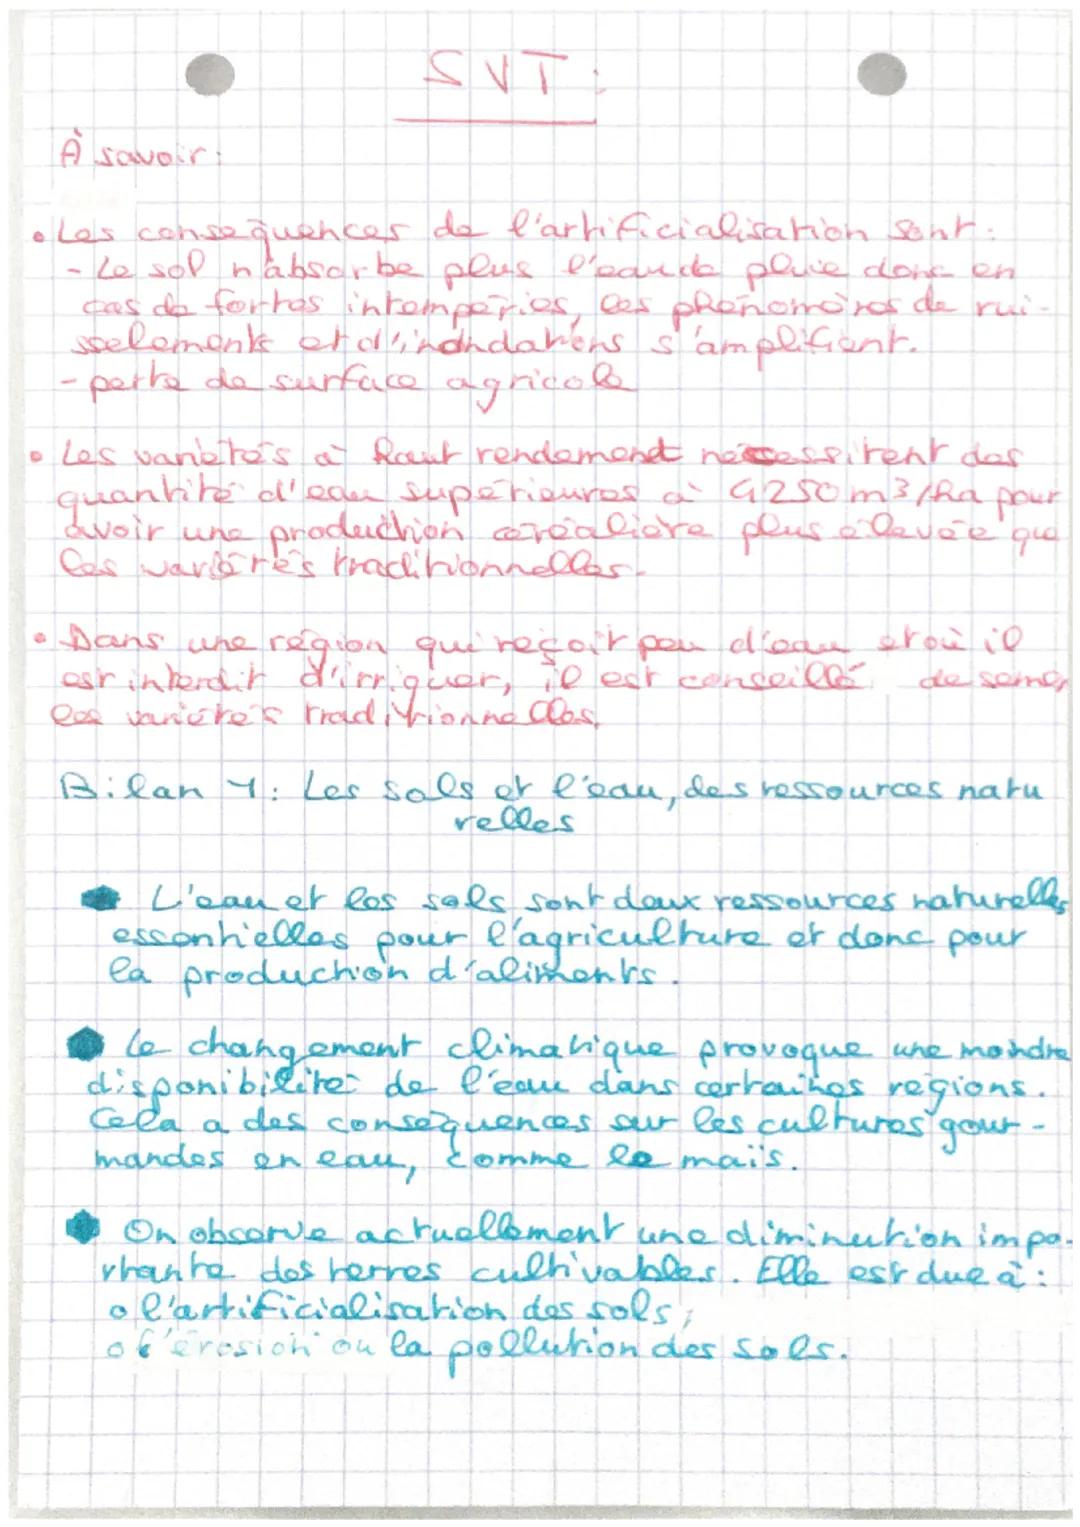 SVT :
À savoir :
• Les conséquences de l'artificialisation sont :
- Le sol n'absorbe plus l'eau de pluie donc en
cas de fortes intempéries, les phénomènes de rui-
sselements et d'inondations s'amplifient.
- perte de surface agricole
• Les variétés à haut rendement nécessitent des
quantité d'eau supérieures à 4250 m³/ha pour
avoir une production céréalière plus élevée que
les variétés traditionnelles.
• Dans une région qui reçoit peu d'eau et où il
est interdit d'irriguer, il est conseillé de semer
les variétés traditionnelles.
Bilan 1 : Les sols et l'eau, des ressources natu
relles
L'eau et les sols sont deux ressources naturelles
essentielles pour l'agriculture et donc pour
la production d'aliments.
Le changement climatique provoque une moindre
disponibilité de l'eau dans certaines régions.
Cela a des conséquences sur les cultures gour-
mandes en eau, comme le maïs.
On observe actuellement une diminution impo-
rtante des terres cultivables. Elle est due à :
o l'artificialisation des sols ;
o l'érosion ou la pollution des sols.